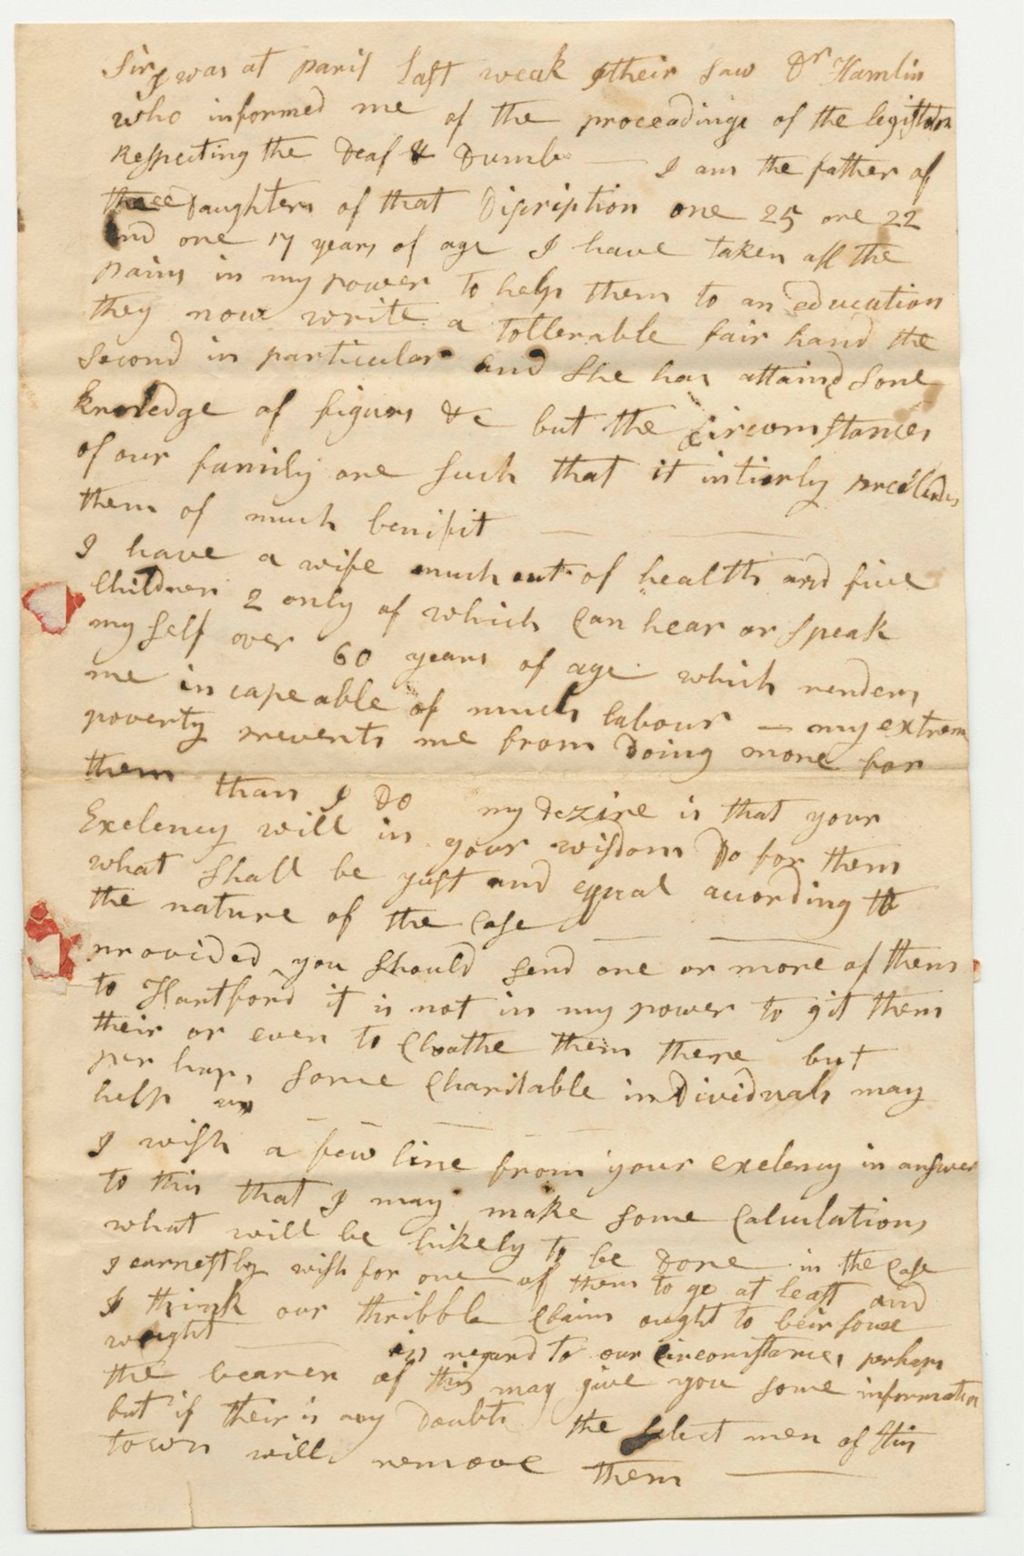 Sir I was at paris last weak I their saw Dr Hamlin
who informed me of the proceadings of the legislature
Respecting the Deaf & Dumb — I am the father of
three Daughters of that Discription one 25 one 22
and one 17 years of age I have taken all the
pains in my power to help them to an education
they now write a tollerable fair hand the
second in particular and she has attaind some
knoledge of figurs &c but the circomstances
of our family are such that it intierly precludes
them of much benifit —
I have a wife much out of health and five
Children 2 only of which Can hear or speak
my self over 60 years of age which renders
me in capeable of much labour — my extrem
poverty prevents me from Doing more for
them than I Do my dezire is that your
Exelency will in your wisdom Do for them
what shall be just and equal acording to
the nature of the Case —
provided you should send one or more of them
to Hartford it is not in my power to git them
their or even to Cloathe them there but
per haps some Charitable individuals may
help us —
I wish a few line from your exelency in answer
to this that I may make some Calculations
what will be likely to be Done in the Case
I earnestly wish for one of them to go at least and
I think our thribble Claim ought to beir some
weight — in regard to our circomstances perhaps
the bearer of this may give you some information
but if their is any Doubts the select men of this
town will remove them —